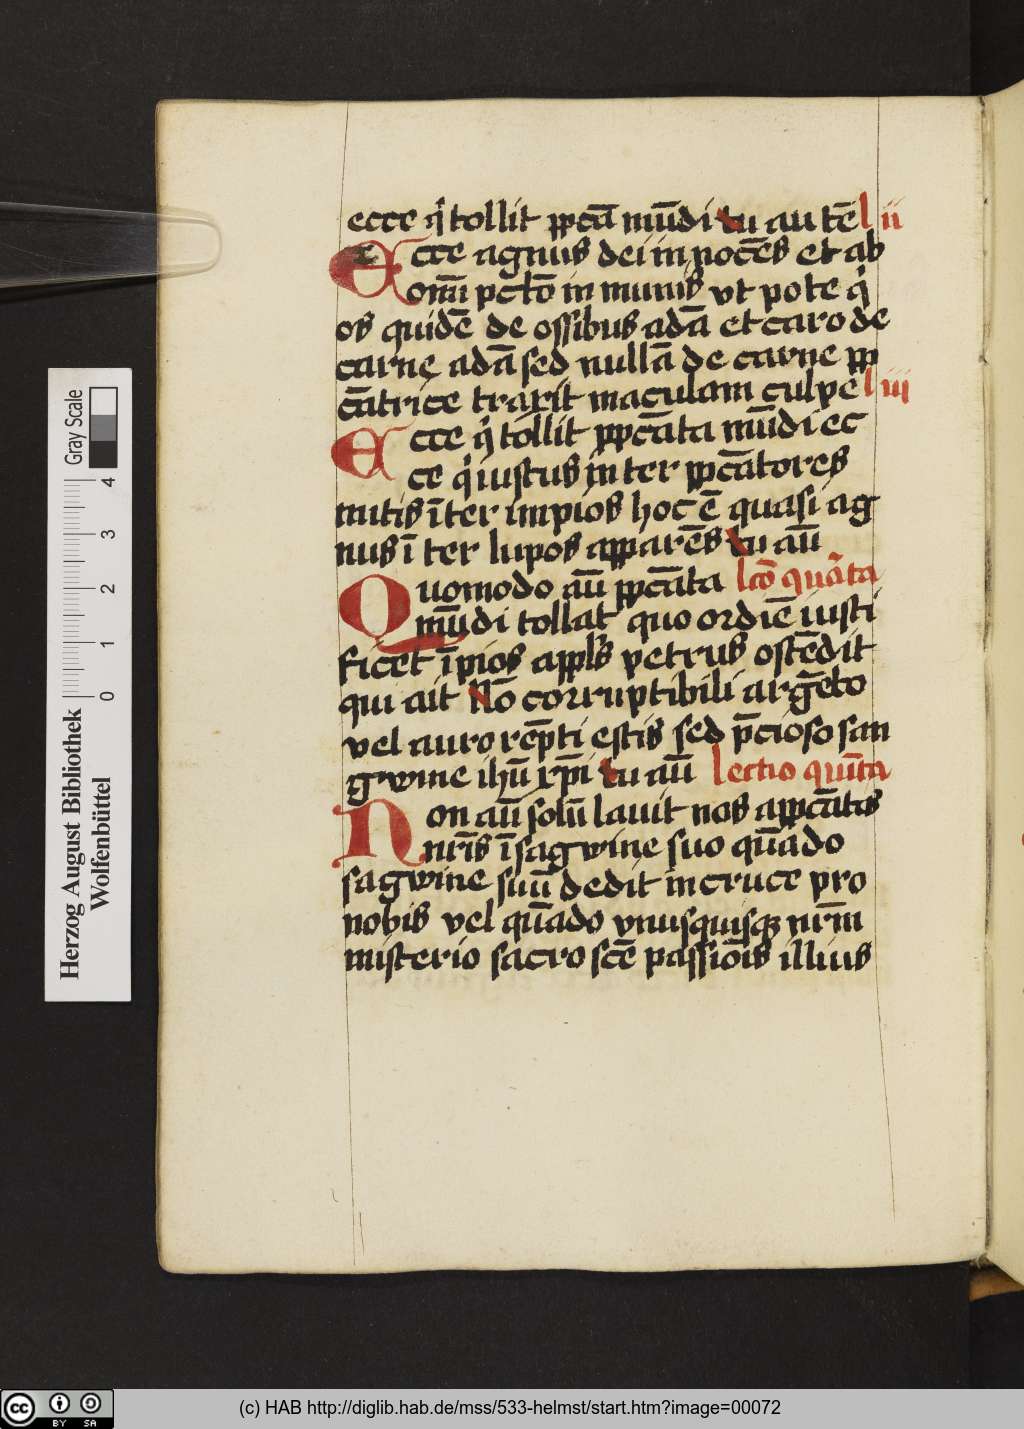 ecce qͥ tollit ppcā mūdi tu au tē l ii
Ecce agnus dei in nocēs et ab
omī pctō in munis vt pote qͥ
os quidē de ossibus adā et caro de
carne adā sed nullā de carne pp
cātrice traxit maculam culpe l iii
Ecce qͥ tollit ppcāta mūdi ec
ce qͥ iustus in ter ppcātores
mitis īter impios hoc ē quasi ag
nus ī ter lupos apparēs tu aū
Quomodo aū ppcāta lcō quāta
mūdi tollat quo ordīe iusti
ficet īpios appls petrus ostēdit
qui ait Nō corruptibili argēto
vel auro rēpti estis sed pciōso san
gwine ihū xpi tu aū lectio quīta
Non aū solū lauit nos appcātis
nrīs ī sagwine suo quādo
sagwine suū dedit in cruce pro
nobis vel quādo vnusquisqꝫ nrm̄
misterio sacro scē passiōis illius
Herzog August Bibliothek
Wolfenbüttel
0 1 2 3 4
Gray Scale
cc BY SA
(c) HAB http://diglib.hab.de/mss/533-helmst/start.htm?image=00072